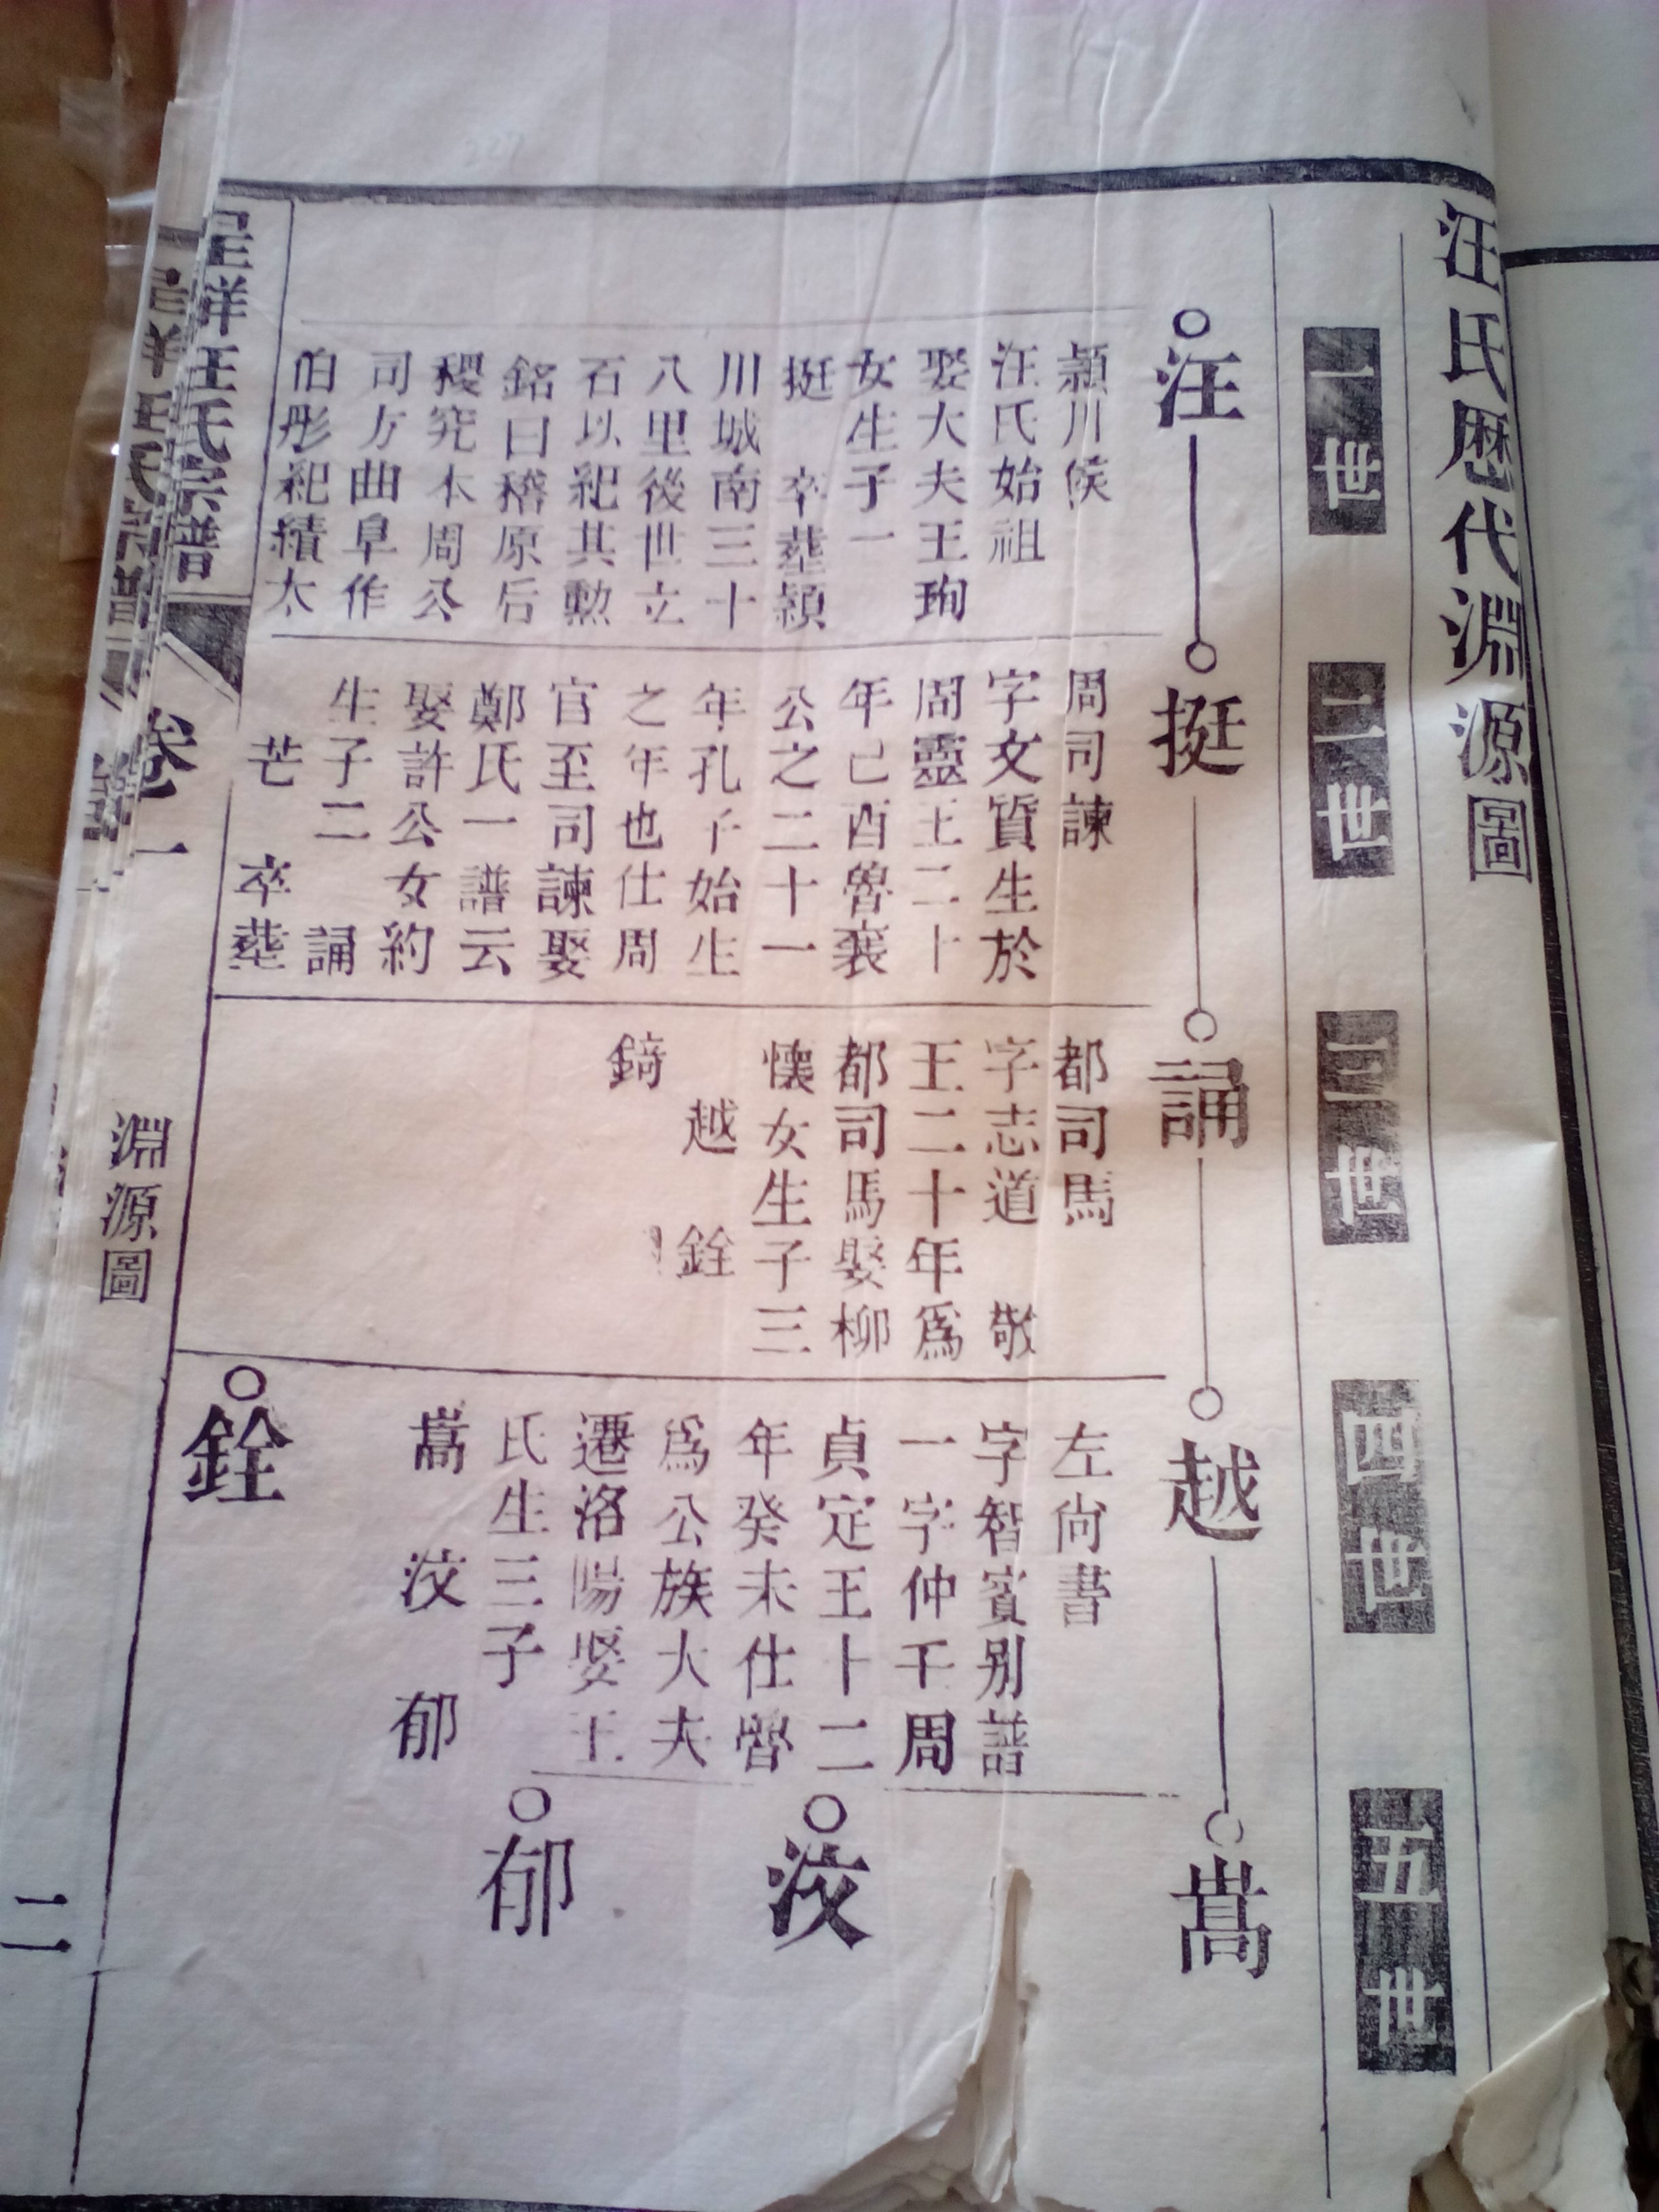 汪氏歷代淵源圖
一世
二世
三世
四世
五世
汪
潁川侯
汪氏始祖
娶大夫王珣
女生子一
挺 卒塟潁
川城南三十
八里後世立
石以紀其勲
銘曰稽原后
稷究本周公
司方曲阜作
伯彤紀績太
挺
周司諫
字文質生於
周靈王二十
年己酉魯襄
公之二十一
年孔子始生
之年也仕周
官至司諫娶
鄭氏一譜云
娶許公女約
生子二 誦
芒 卒塟
誦
都司馬
字志道 敬
王二十年爲
都司馬娶柳
懐女生子三
越 銓
錡
越
左尚書
字智賓别譜
一字仲干周
貞定王十二
年癸未仕魯
爲公族大夫
遷洛陽娶王
氏生三子
嵩 洨 郁
銓
嵩
洨
郁
汪氏宗譜
卷一
淵源圖
二